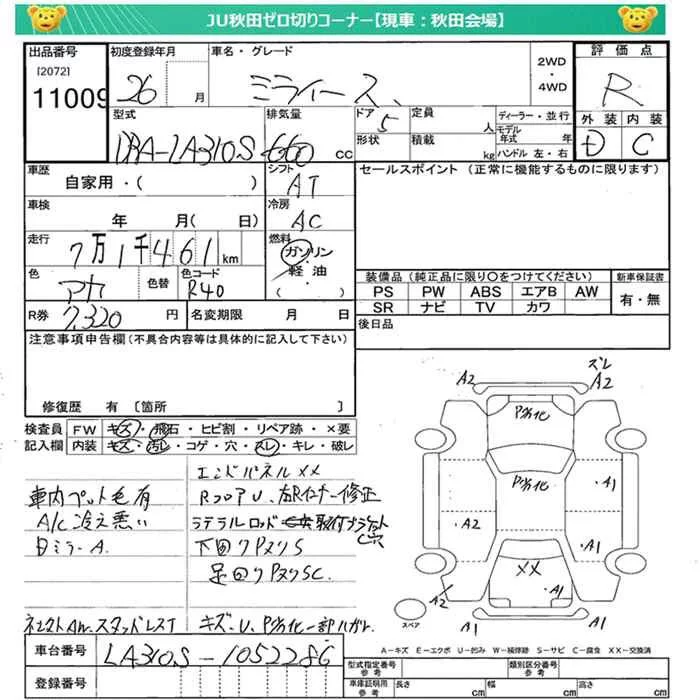 JU秋田ゼロ切りコーナー【現車：秋田会場】
出品番号 初度登録年月 車名・グレード 2WD・4WD 評価点
[2072]
11009 26 月 ミライース R
型式 排気量 ドア 定員 人 ディーラー・並行 外装 内装
DBA-LA310S 660 cc 5 形状 積載 kg モデル年式 年 ハンドル 左・右 D C
車歴 シフト セールスポイント (正常に機能するものに限ります)
自家用・( ) AT
車検 冷房
年 月( 日) AC
走行 燃料
7万1千461km ガソリン・軽油・( )
色 色替 色コード 装備品(純正品に限り〇をつけてください) 新車保証書
アカ R40 PS PW ABS エアB AW 有・無
SR ナビ TV カワ
R券 7,320円 名変期限 月 日 後日品
注意事項申告欄(不具合内容等は具体的に記入して下さい)
修復歴 有 〔箇所 〕
検査員 FW キズ・飛石・ヒビ割・リペア跡・×要
記入欄 内装 キズ・汚れ・コゲ・穴・スレ・キレ・破レ
車内ペット毛有
A/C冷え悪い
日ミラーA.
エンドパネルXX
RフロアU、左Rインナー修正
ラテラルロッド
下回りPヌリS
足回りPヌリSC.
スタッドレスT
キズ・U、P劣化一部ハガレ.
A2
ズレ
A2
P劣化
P劣化
A1
A2
A1
XX
A1
A2
A1
A1
スペア
A-キズ E-エクボ U-凹み W-補修跡 S-サビ C-腐食 XX-交換済
車台番号 LA310S-1052286
登録番号
型式指定番号 参考 類別区分番号
車庫証明用 参考 長さ cm 幅 cm 高さ cm